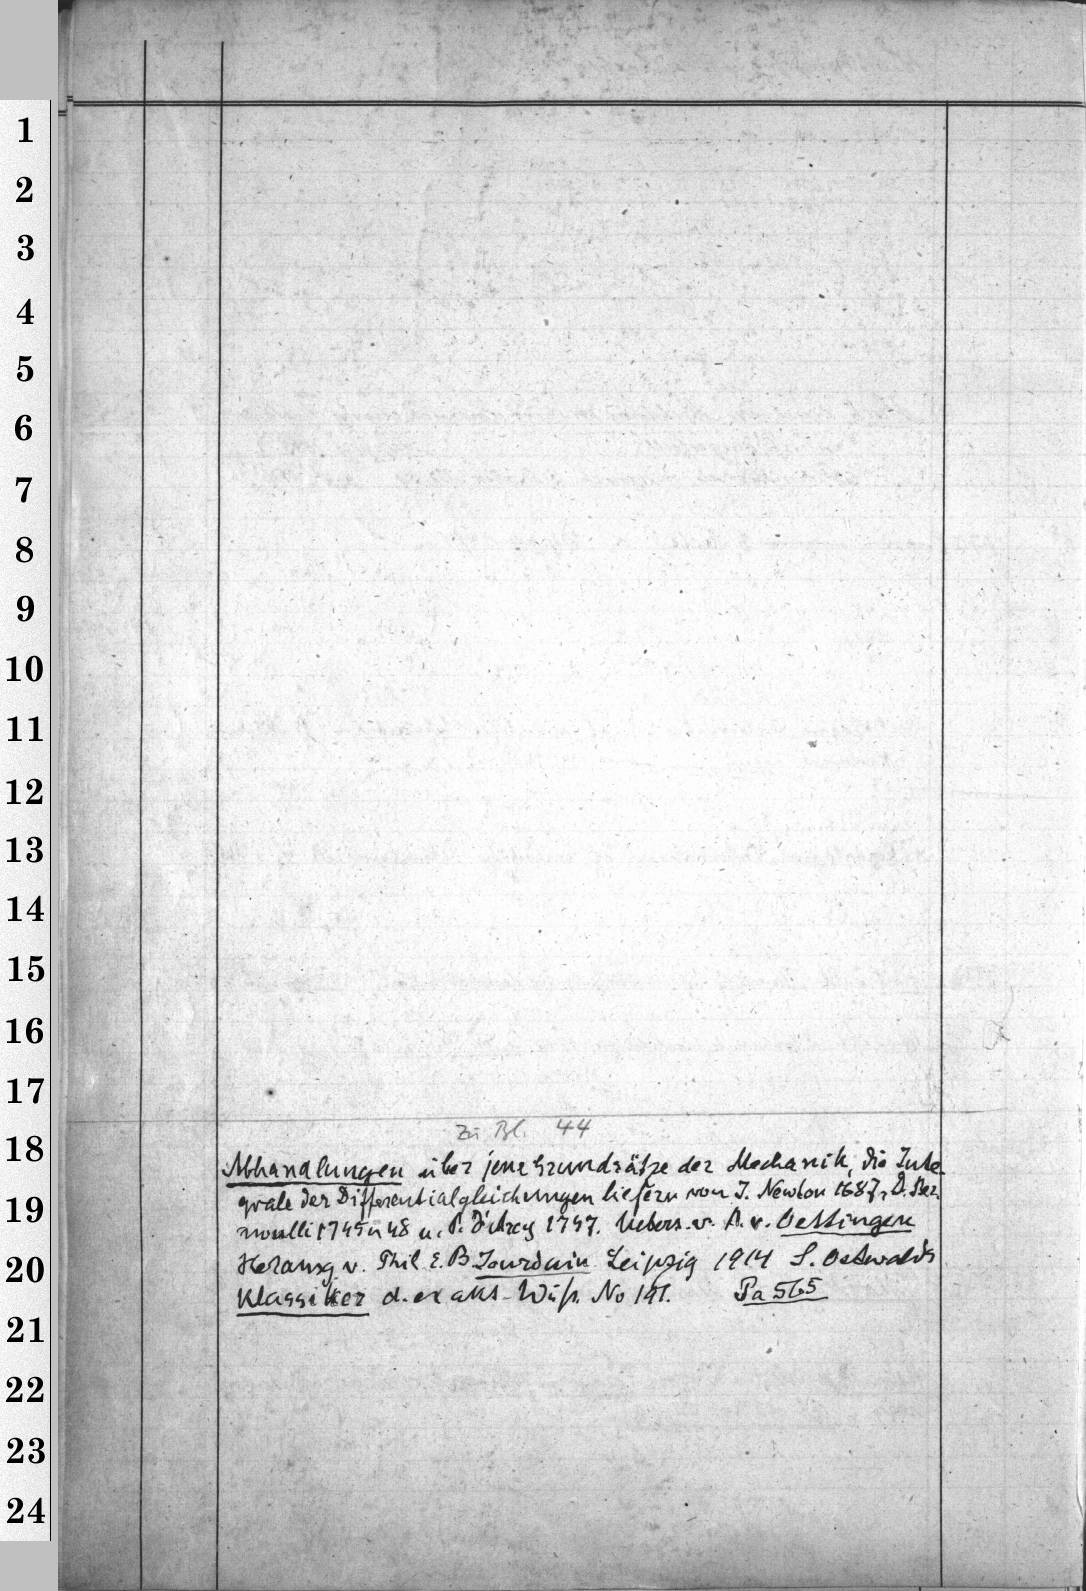 1
2
3
4
5
6
7
8
9
10
11
12
13
14
15
16
17
18
19
20
21
22
23
24
Zu Bl. 44
Abhandlungen über jene Grundsätze der Mechanik, die Inte-
grale der Differentialgleichungen liefern von I. Newton 1687, D. Ber-
noulli 1745 u 48 u. P. d'Arcy 1747. Uebers. v. A. v. Oettingen
Herausg v. Phil. E. B Jourdain Leipzig 1914 S. Ostwalds
Klassiker d. exakt. Wiss. No 191. Pa 565